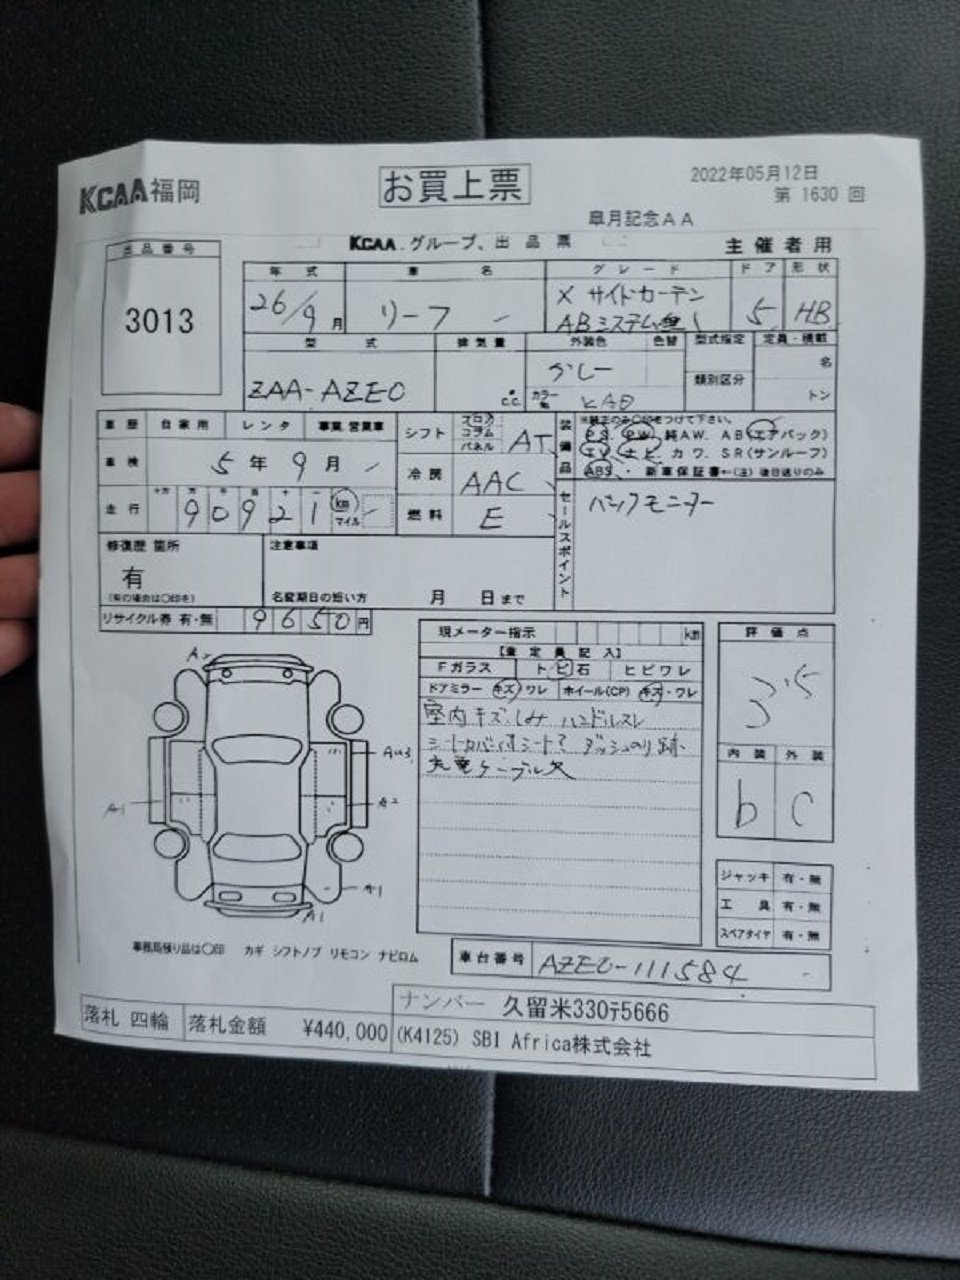 KCAA福岡
お買上票
2022年05月12日
第 1630 回
皐月記念AA
KCAA.グループ、出品票
主催者用
出品番号
3013
年式 車名 グレード ドア 形状
26/9月 リーフ X サイドカーテン 5 HB
ABシステム無し
型式 排気量 外装色 色替 型式指定 定員・積載
ZAA-AZE0 c.c. グレー 名
カラー№ KAD 類別区分 トン
車歴 自家用 レンタ 事業 営業車
車検 5年9月
走行 十万 万 千 百 十 一
90921 km マイル
シフト フロア コラム パネル AT
冷房 AAC
燃料 E
装備品
※純正のみ○印をつけて下さい。
P.S. P.W. 純AW. AB(エアバック)
T.V. ナビ. カワ. SR(サンルーフ)
ABS. 新車保証書←(注)後日送りのみ
セールスポイント
バックモニター
修復歴 箇所
有
(有の場合は○印を)
注意事項
名変期日の短い方 月 日まで
リサイクル券 有・無 9650円
現メーター指示 km
【査定員記入】
Fガラス トビ石 ヒビワレ
ドアミラー キズ・ワレ ホイール(CP) キズ・ワレ
室内キズ.しみ ハンドルスレ
シートカバー付シート? ダッシュのり跡.
充電ケーブル欠
評価点
3.5
内装 外装
b C
ジャッキ 有・無
工具 有・無
スペアタイヤ 有・無
A1
AU3
A2
A1
A1
事務局預り品は○印 カギ シフトノブ リモコン ナビロム
車台番号 AZE0-111584
ナンバー 久留米330テ5666
落札 四輪 落札金額 ¥440,000 (K4125) SBI Africa株式会社